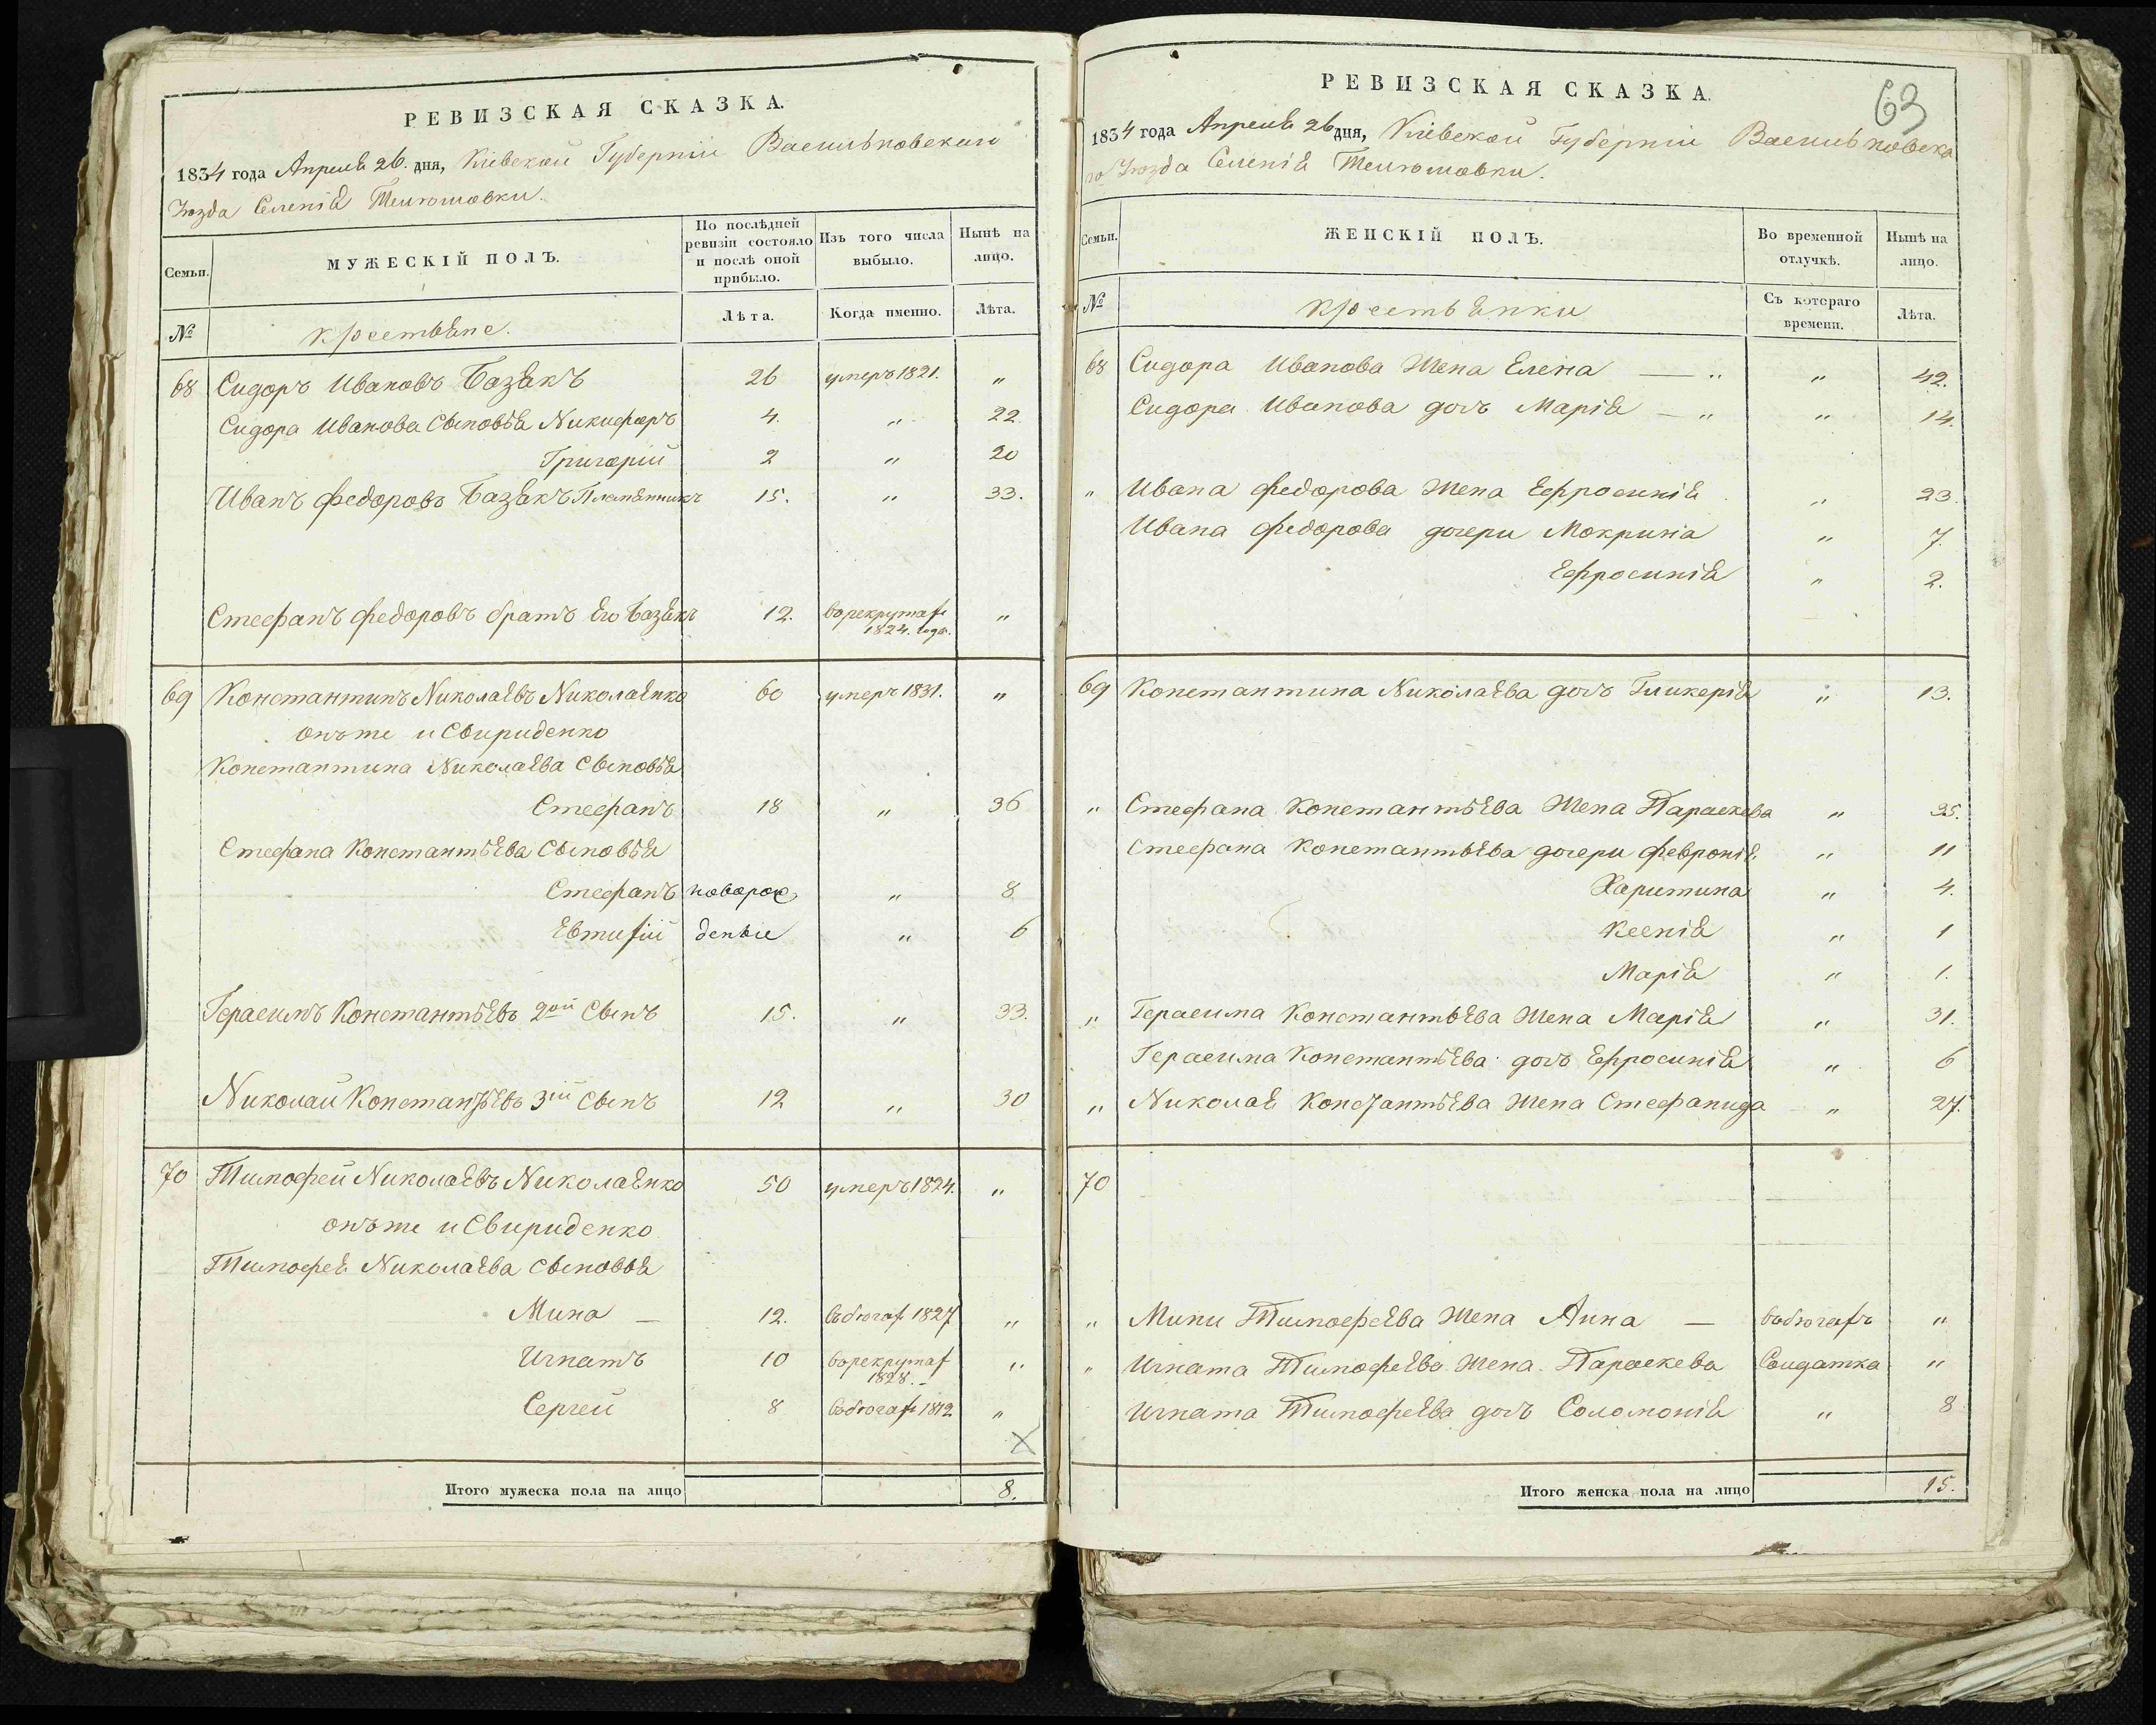 РЕВИЗСКАЯ СКАЗКА.
1834 года Апреля 26. дня, Кіевской Губерніи Васильковскаго
Уезда Селенія
Семьи. МУЖЕСКІЙ ПОЛЪ. По послѣдней ревизіи состояло и послѣ оной прибыло. Изъ того числа выбыло. Нынѣ на лицо.
№ крестьяне. Лѣта. Когда именно. Лѣта.
68 Сидоръ Ивановъ Базякъ 26 умеръ 1821. „
Сидора Иванова Сыновья Никифоръ 4. „ 22
Григорій 2 „ 20
Иванъ Федоровъ Базякъ Племянникъ 15. „ 33.
Стефанъ Федоровъ братъ Его Базякъ 12. ворекрутаѣ 1824. года. „
69 Константинъ Николаевъ Николаенко 60 умеръ 1831. „
онъже и Свириденко
Константина Николаева Сыновья
Стефанъ 18 „ 36
Стефана Константьева Сыновья
Стефанъ новорож „ 8.
Евтифій денъи „ 6
Герасимъ Константьевъ 2ой Сынъ 15. „ 33.
Николай Константьевъ 3ій Сынъ 12 „ 30
70 Тимофей Николаевъ Николаенко 50 умеръ 1824. „
онъже и Свириденко
Тимофея Николаева Сыновья
Мина — 12. 1827 „
Игнатъ 10 1828. „
Сергей 8 „
Итого мужеска пола на лицо 8.
63
РЕВИЗСКАЯ СКАЗКА.
1834 года Апреля 26 дня, Кіевской Губерніи Васильковска
го Уезда Селенія
Семьи. ЖЕНСКІЙ ПОЛЪ. Во временной отлучкѣ. Нынѣ на лицо.
№ крестьянки Съ котораго времени. Лѣта.
68 Сидора Иванова Жена Елена — „ „ 42.
Сидора Иванова дочь Марія — „ „ 14.
„ Ивана Федорова Жена Ефросинія „ 23.
Ивана Федорова дочери Мокрина „ 7.
Ефросинія „ 2.
69 Константина Николаева дочь Гликерія „ 13.
„ Стефана Константьева Жена Параскева „ 35.
Стефана Константьева дочери Февронія „ 11
Харитина „ 4.
Ксенія „ 1
Марія „ 1.
„ Герасима Константьева Жена Марія „ 31.
Герасима Константьева дочь Ефросинія „ 6
„ Николая Константьева Жена Стефанида „ 27.
70
„ Мины Тимофеева Жена Анна — „
„ Игната Тимофеева Жена Параскева Солдатка „
Игната Тимофеева дочь Соломонія „ 8
Итого женска пола на лицо 15.